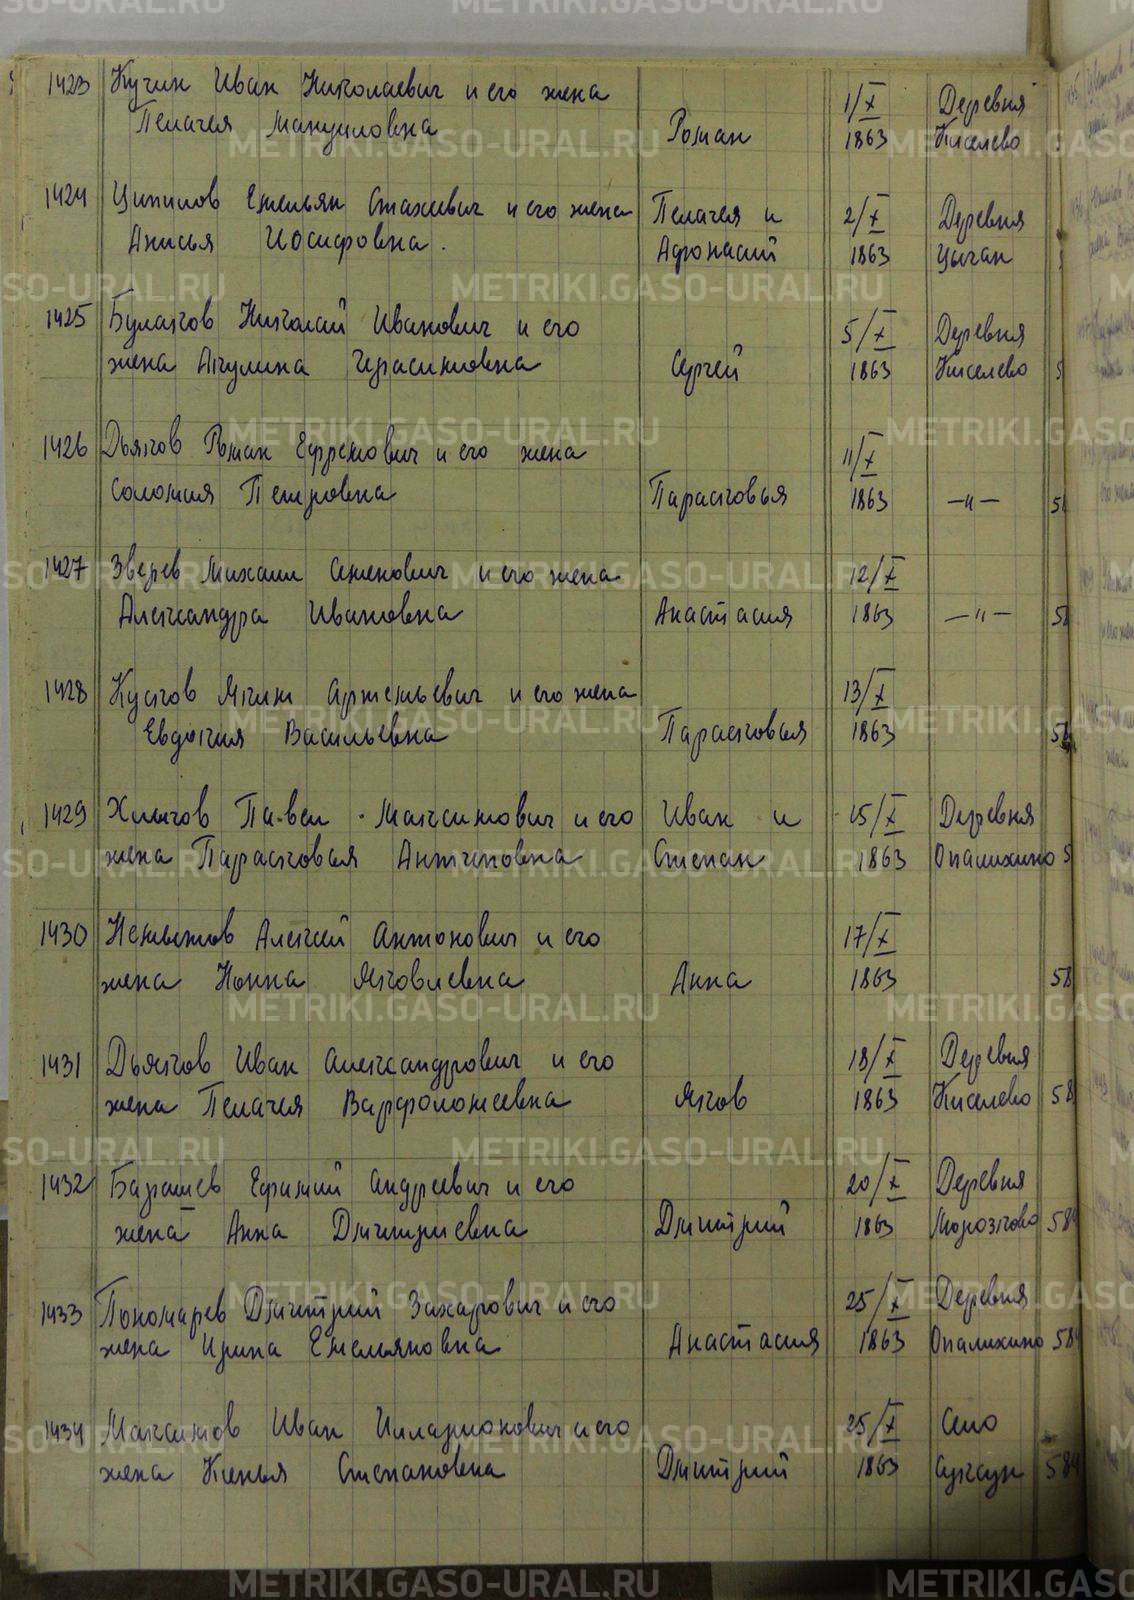 1423 Кучин Иван Николаевич и его жена 1/X Деревня
Пелагея Мануиловна Роман 1863 Киселево
1424 Ципилов Емельян Стахиевич и его жена Пелагея и 2/X Деревня
Анисья Иосифовна. Афонасий 1863 Цыган
1425 Булатов Николай Иванович и его 5/X Деревня
жена Акулина Герасимовна Сергей 1863 Киселево 5
1426 Дьяков Роман Ефремович и его жена 11/X
Соломия Петровна Парасковья 1863 —"—
1427 Зверев Михаил Семенович и его жена 12/X
Александра Ивановна Анастасия 1863 —"—
1428 Куклов Яким Артемьевич и его жена 13/X
Евдокия Васильевна Парасковья 1863
1429 Хлыков Павел Максимович и его Иван и 15/X Деревня
жена Парасковья Антиповна Степан 1863 Опалихино 5
1430 Неживемов Алексей Антонович и его 17/X
жена Нонна Яковлевна Анна 1863 58
1431 Дьяков Иван Александрович и его 18/X Деревня
жена Пелагея Варфоломеевна Яков 1863 Киселево 58
1432 Барашев Ефимий Андреевич и его 20/X Деревня
жена Анна Дмитриевна Дмитрий 1863 Морозково 584
1433 Пономарев Дмитрий Захарович и его 25/X Деревня
жена Ирина Емельяновна Анастасия 1863 Опалихино 584
1434 Максимов Иван Илларионович и его 25/X Село
жена Ксенья Степановна Дмитрий 1863 Суксун 584
METRIKI.GASO-URAL.RU